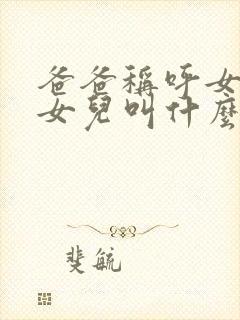 爸爸稱呼女
女兒叫什麼
斐毓